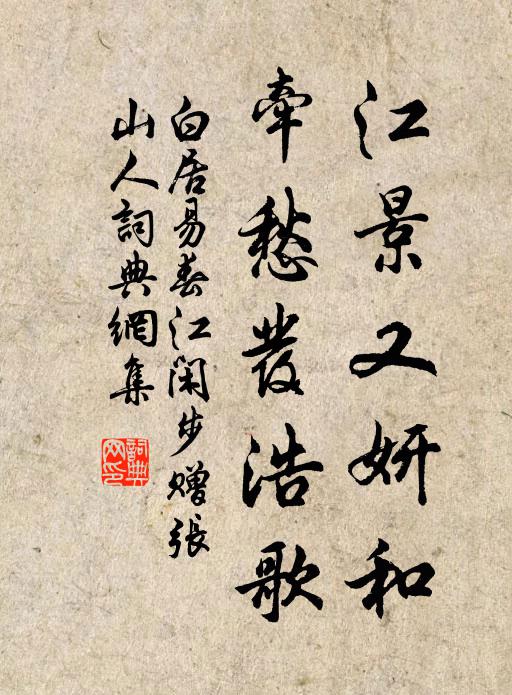 江景又妍和
牽愁發浩歌
白居易春江閑步贈張
山人詞典網集
詞典
网印